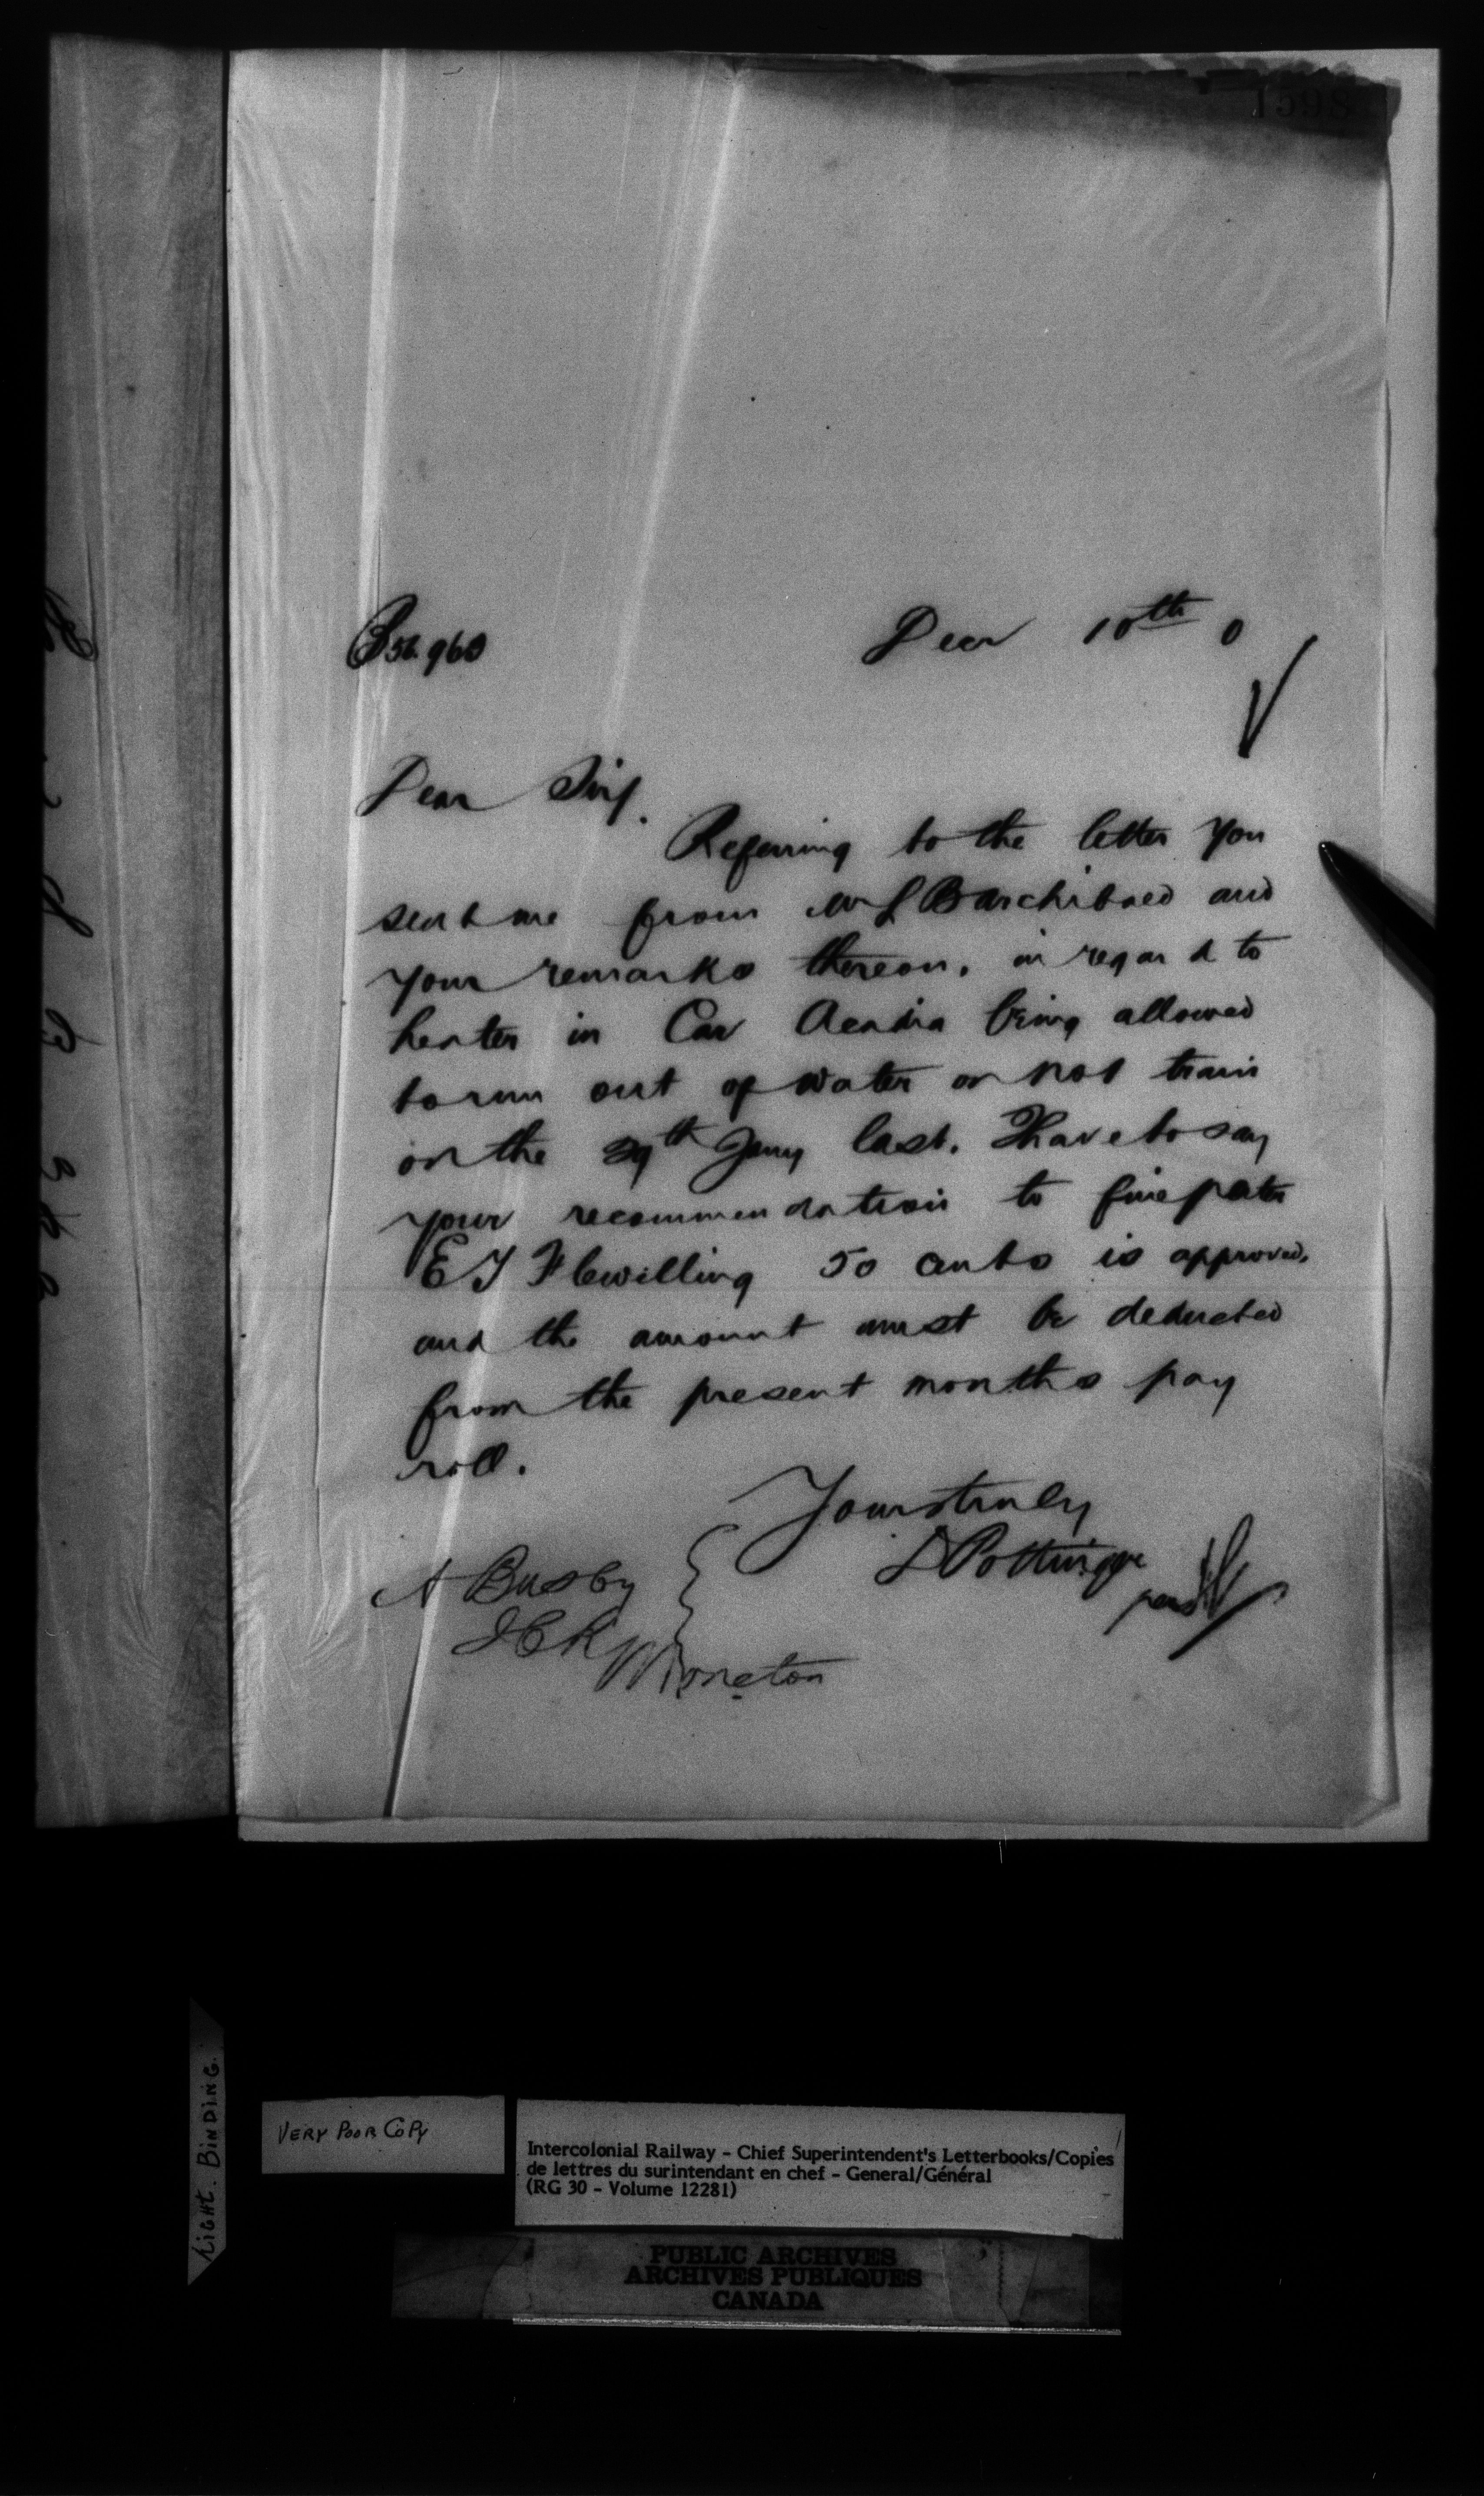 1598
56.960
Decr 10th 0
Dear Sir,
Referring to the letter you
sent me from Mr L B Archibald and
your remarks thereon, in regard to
heater in Car Acadia being allowed
to run out of water on No 1 train
on the 29th Jany last. I have to say
your recommendation to fine porter
E J Flewelling 50 cents is approved,
and the amount must be deducted
from the present months pay
roll.
Yours truly
D Pottinger
A Busby
I C R Moncton
LIGHT. BINDING.
VERY POOR COPY
Intercolonial Railway - Chief Superintendent's Letterbooks/Copies
de lettres du surintendant en chef - General/Général
(RG 30 - Volume 12281)
PUBLIC ARCHIVES
ARCHIVES PUBLIQUES
CANADA